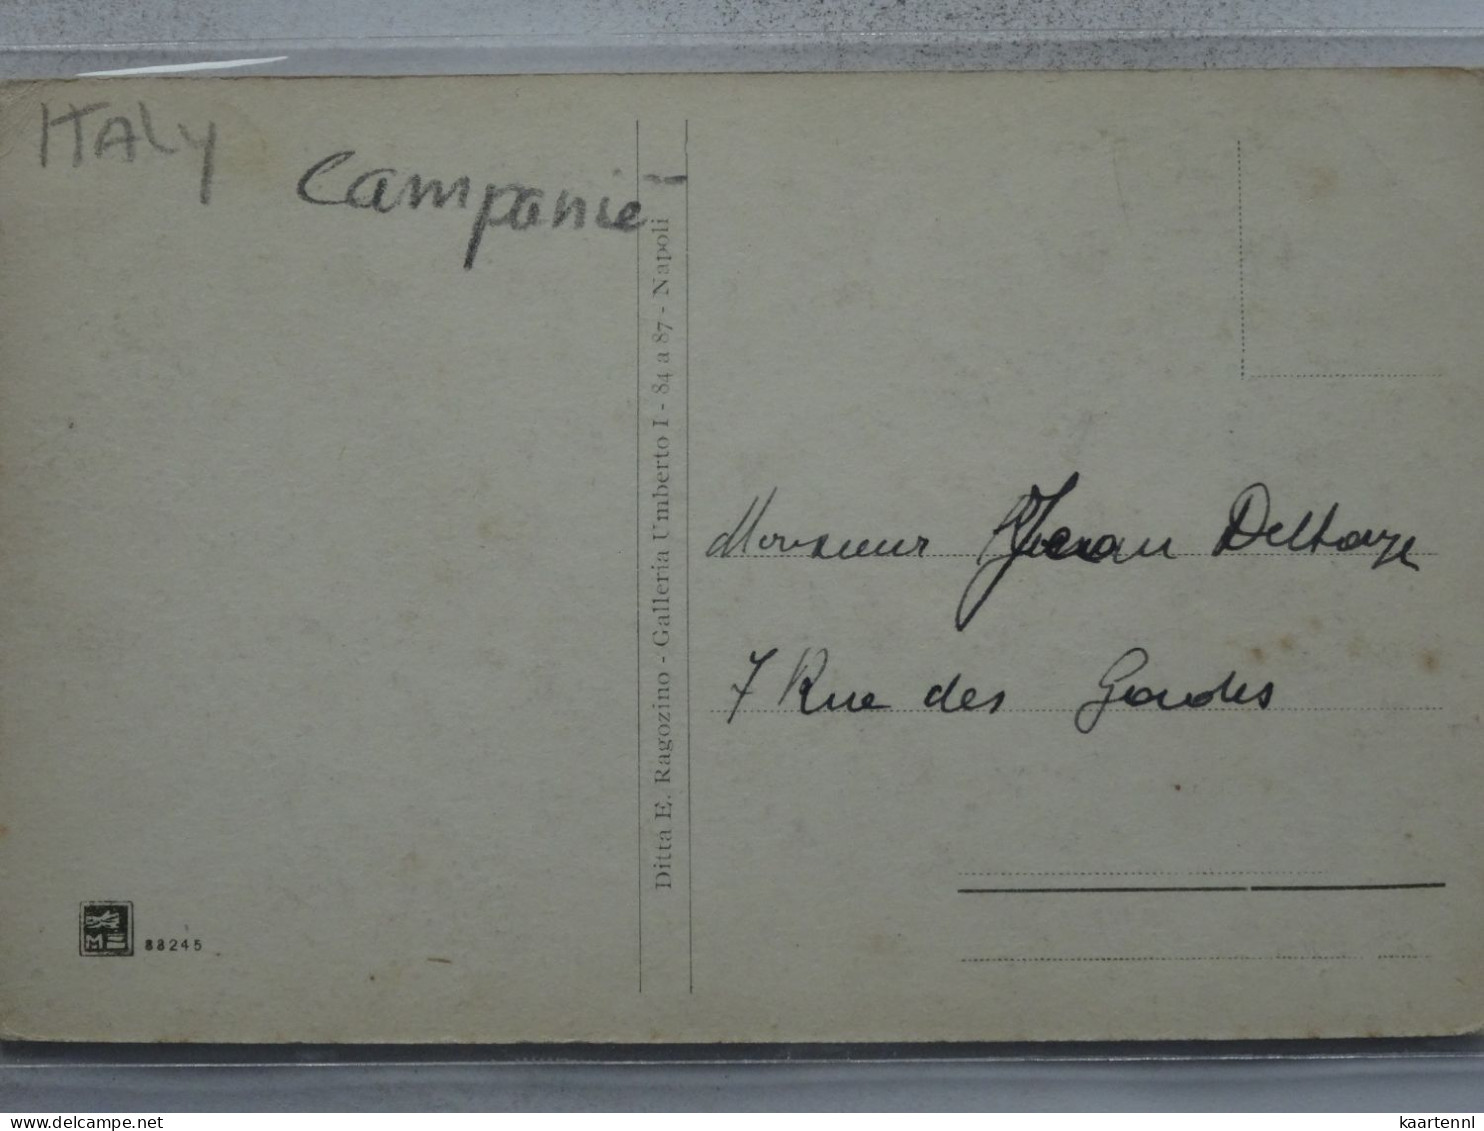 ITALY
Campanië
Ditta E. Ragozino - Galleria Umberto I - 84 a 87 - Napoli
Monsieur Jean Delhaye
7 Rue des
M
88245
Website : delcampe.net
kaartennl